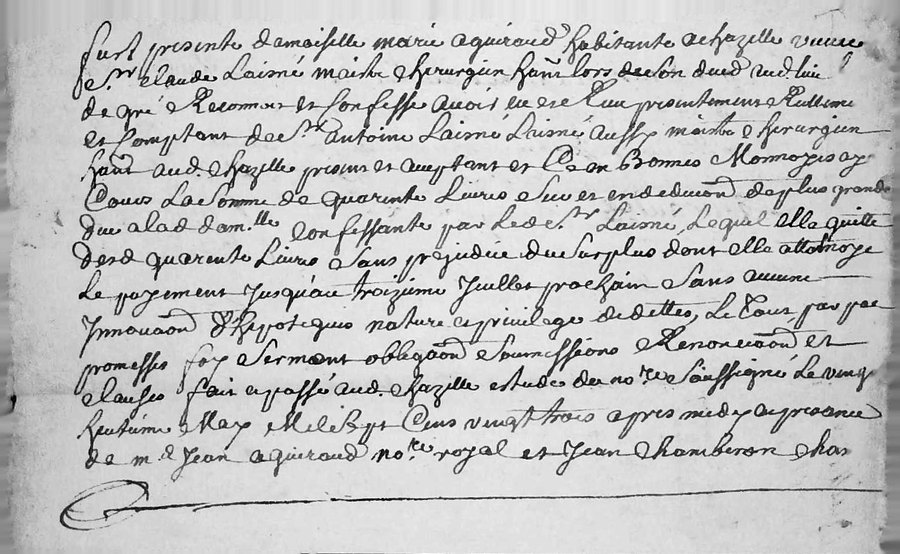 fust presente damaiselle marie aguiraud habitante a chazelle vuive
de Sr. claude Laisné maistre chirurgien hant. lors de son deced aud. lieu
de gré Reconnoit et confesse avoir eu et Reçu presentement Reellemt
et Comptant de Sr. antoine Laisné Laisné aussy maistre chirurgien
hant aud. chazelle presant et aceptant et Ce en bonnes Monnoyes ay
Cours La Somme de quarente Livres Sur et en deduon de plus grande
due a lad dam.lle confessante par led Sr. Laisné, Lequel elle quitte
desd quarente Livres Sans prejudice du Surplus dont elle attermoye
Le payement Jusqu'au troizieme Juillet prochain Sans aucune
Innovaon d'hypoteques nature et privilege de dettes, Le Tout par par
promesses foy Serment obligaon Soumissions Renonciaon et
clauses fait et passé aud. chazelle estude du no.re Soussigné Le vingt
huitieme May Mil sept Cens vingt trois apres midy en presance
de m.e Jean aguiraud no.re royal et Jean Chamberon char